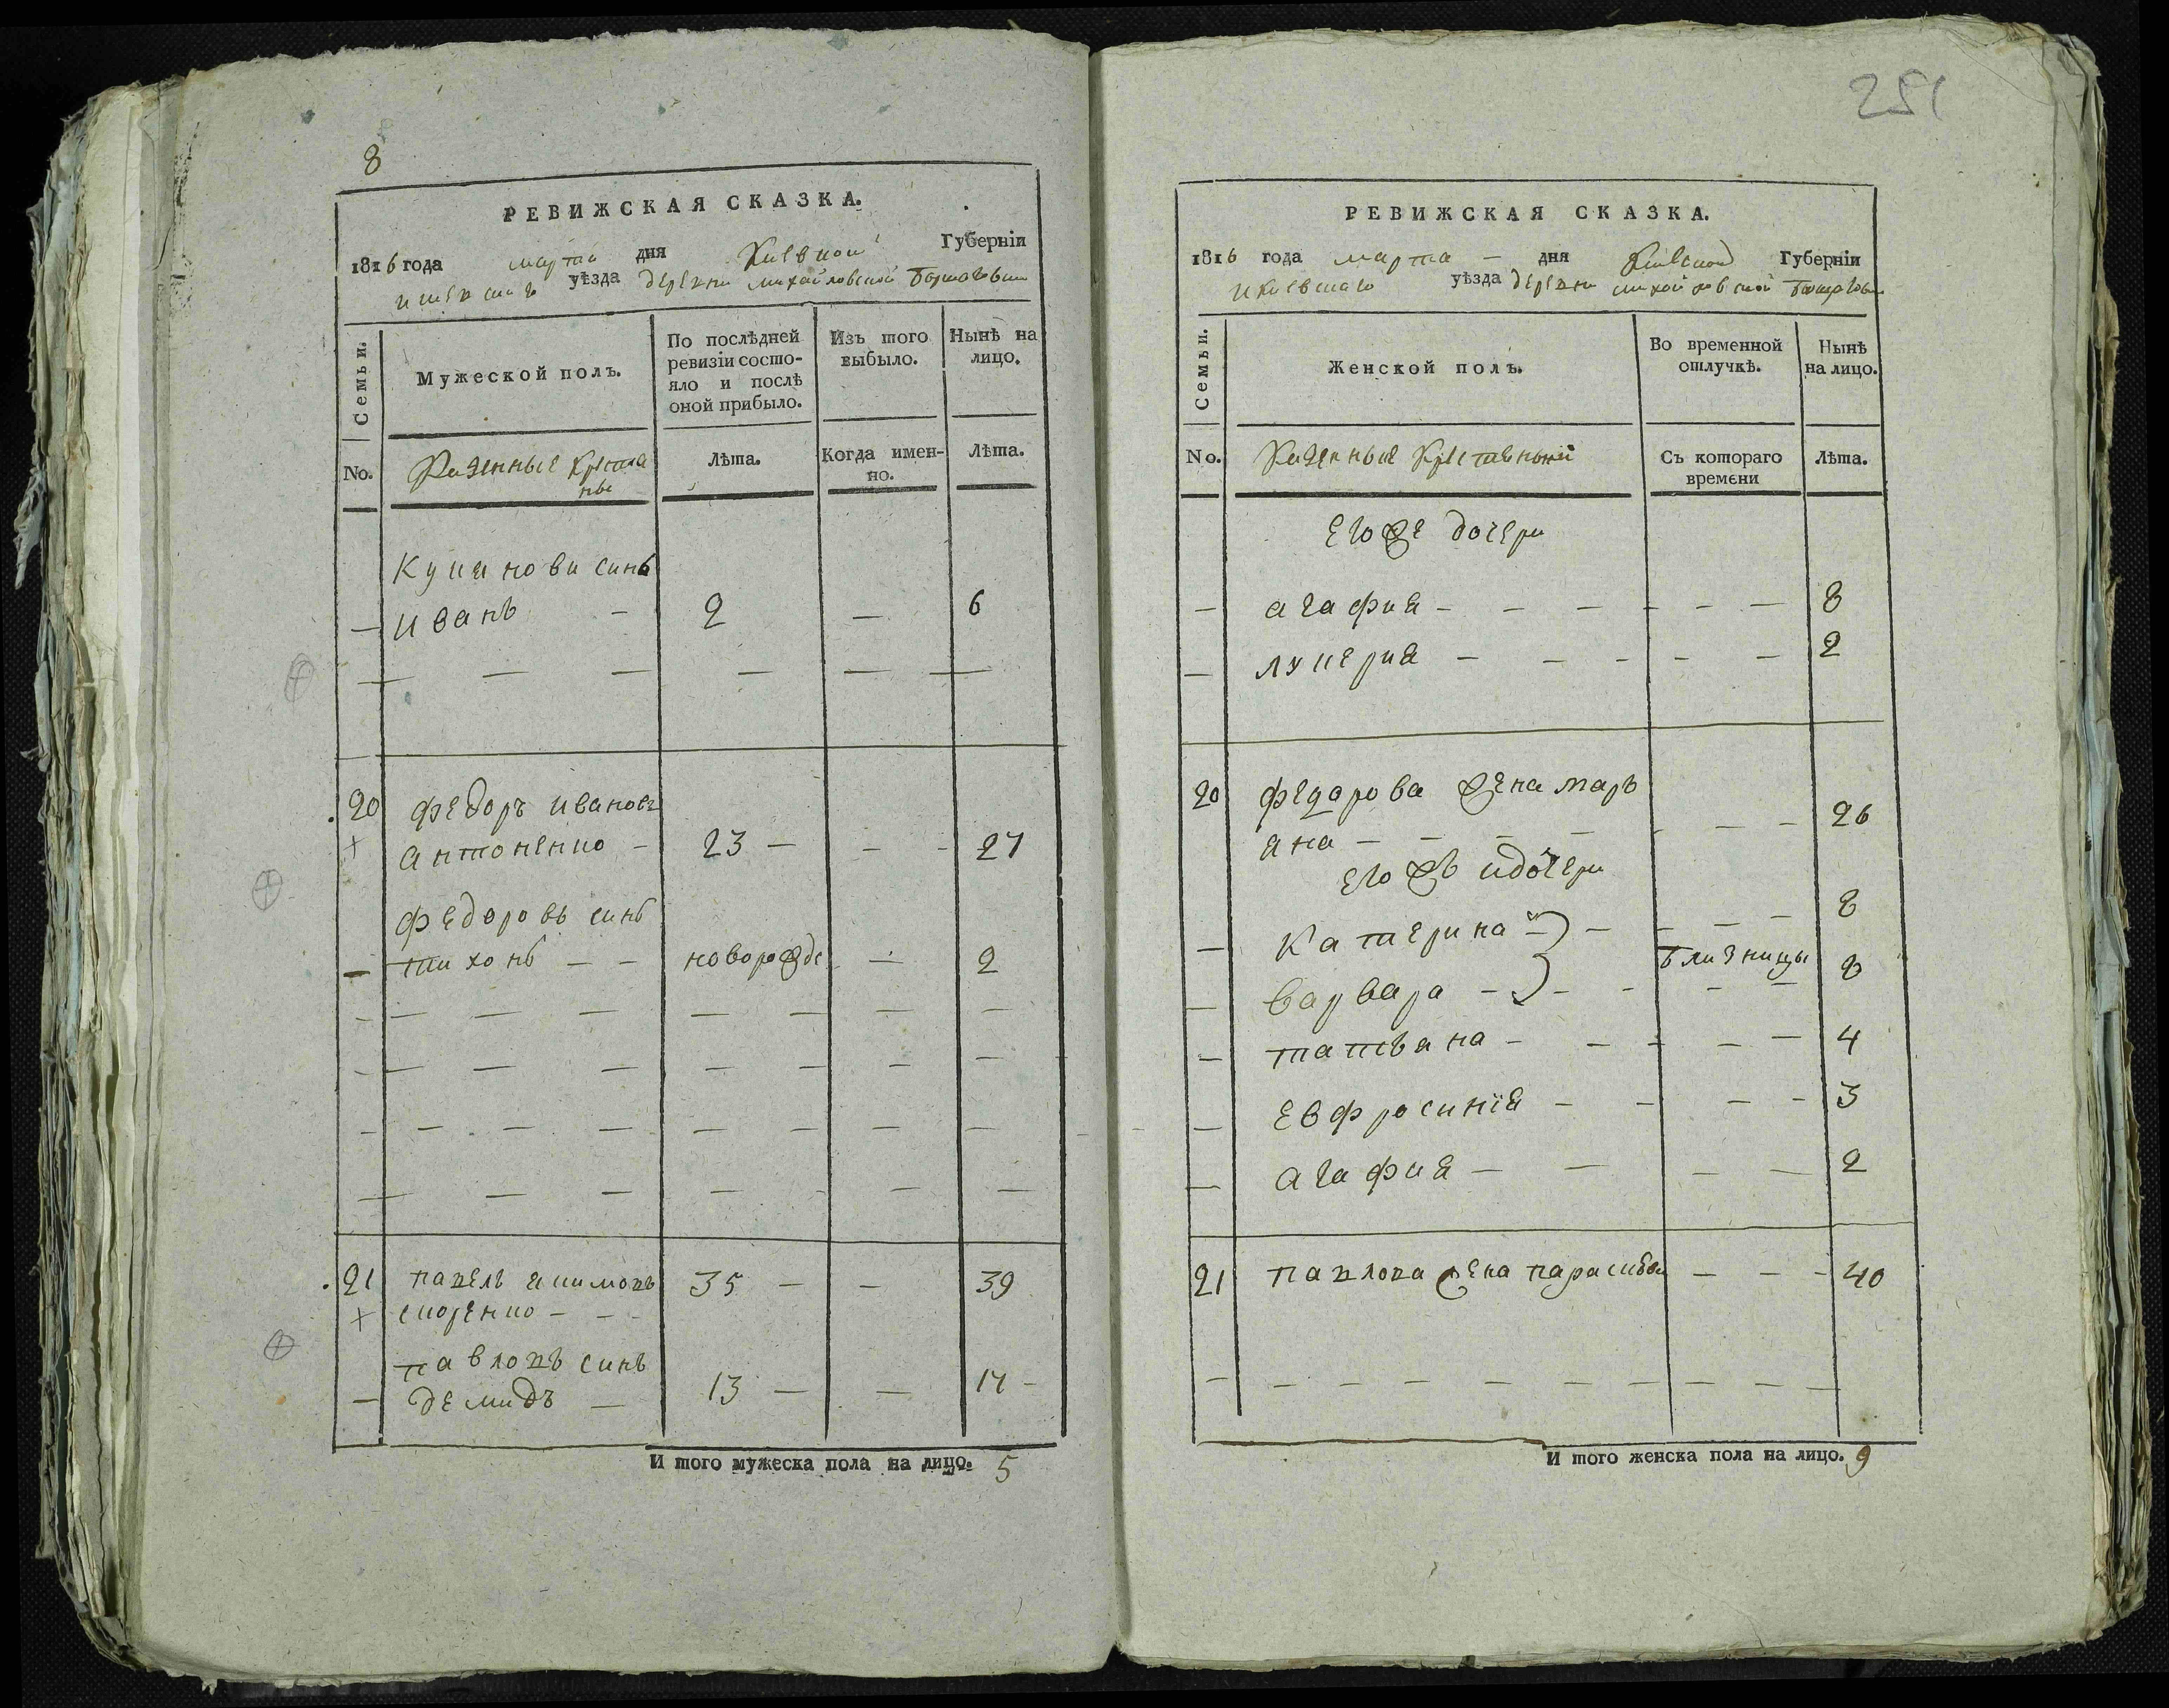 8
РЕВИЖСКАЯ СКАЗКА.
1816 года марта дня Киевской Губерніи
уѣзда деревни михайловской
Семьи.
Мужеской полъ.
По послѣдней ревизіи состояло и послѣ оной прибыло.
Изъ того выбыло.
Нынѣ на лицо.
No.
Казенные Крестья
не
Лѣта.
Когда именно.
Лѣта.
сынъ
— иванъ — 2 — 6
20 федоръ ивановъ
× антоненко — 23 — — - 27
федоровъ синъ
— тихонъ — — новорожде — 2
21 павелъ екимовъ 35 — — 39
× скоренко — —
павловъ синъ
— демидъ — 13 — — 17 -
И того мужеска пола на лицо. 5
251
РЕВИЖСКАЯ СКАЗКА.
1816 года марта — дня Киевской Губерніи
икиевскаго уѣзда деревни михайловской
Семьи.
Женской полъ.
Во временной отлучкѣ.
Нынѣ на лицо.
No.
Казенные Крестьянки
Съ котораго времени
Лѣта.
егоже дочери
— агафия — — — — — — 8
— лукерия — — — — — 2
20 федарова жена марь
яна — — — — — — — 26
егожъ идочери
— катерина — — — — — 8
близницы
— варвара — — — — — 8
— татьяна — — — — — 4
— евфросинїя — — — — 3
— агафия — — — — 2
21 павлова жена парасковя — — — 40
И того женска пола на лицо. 9